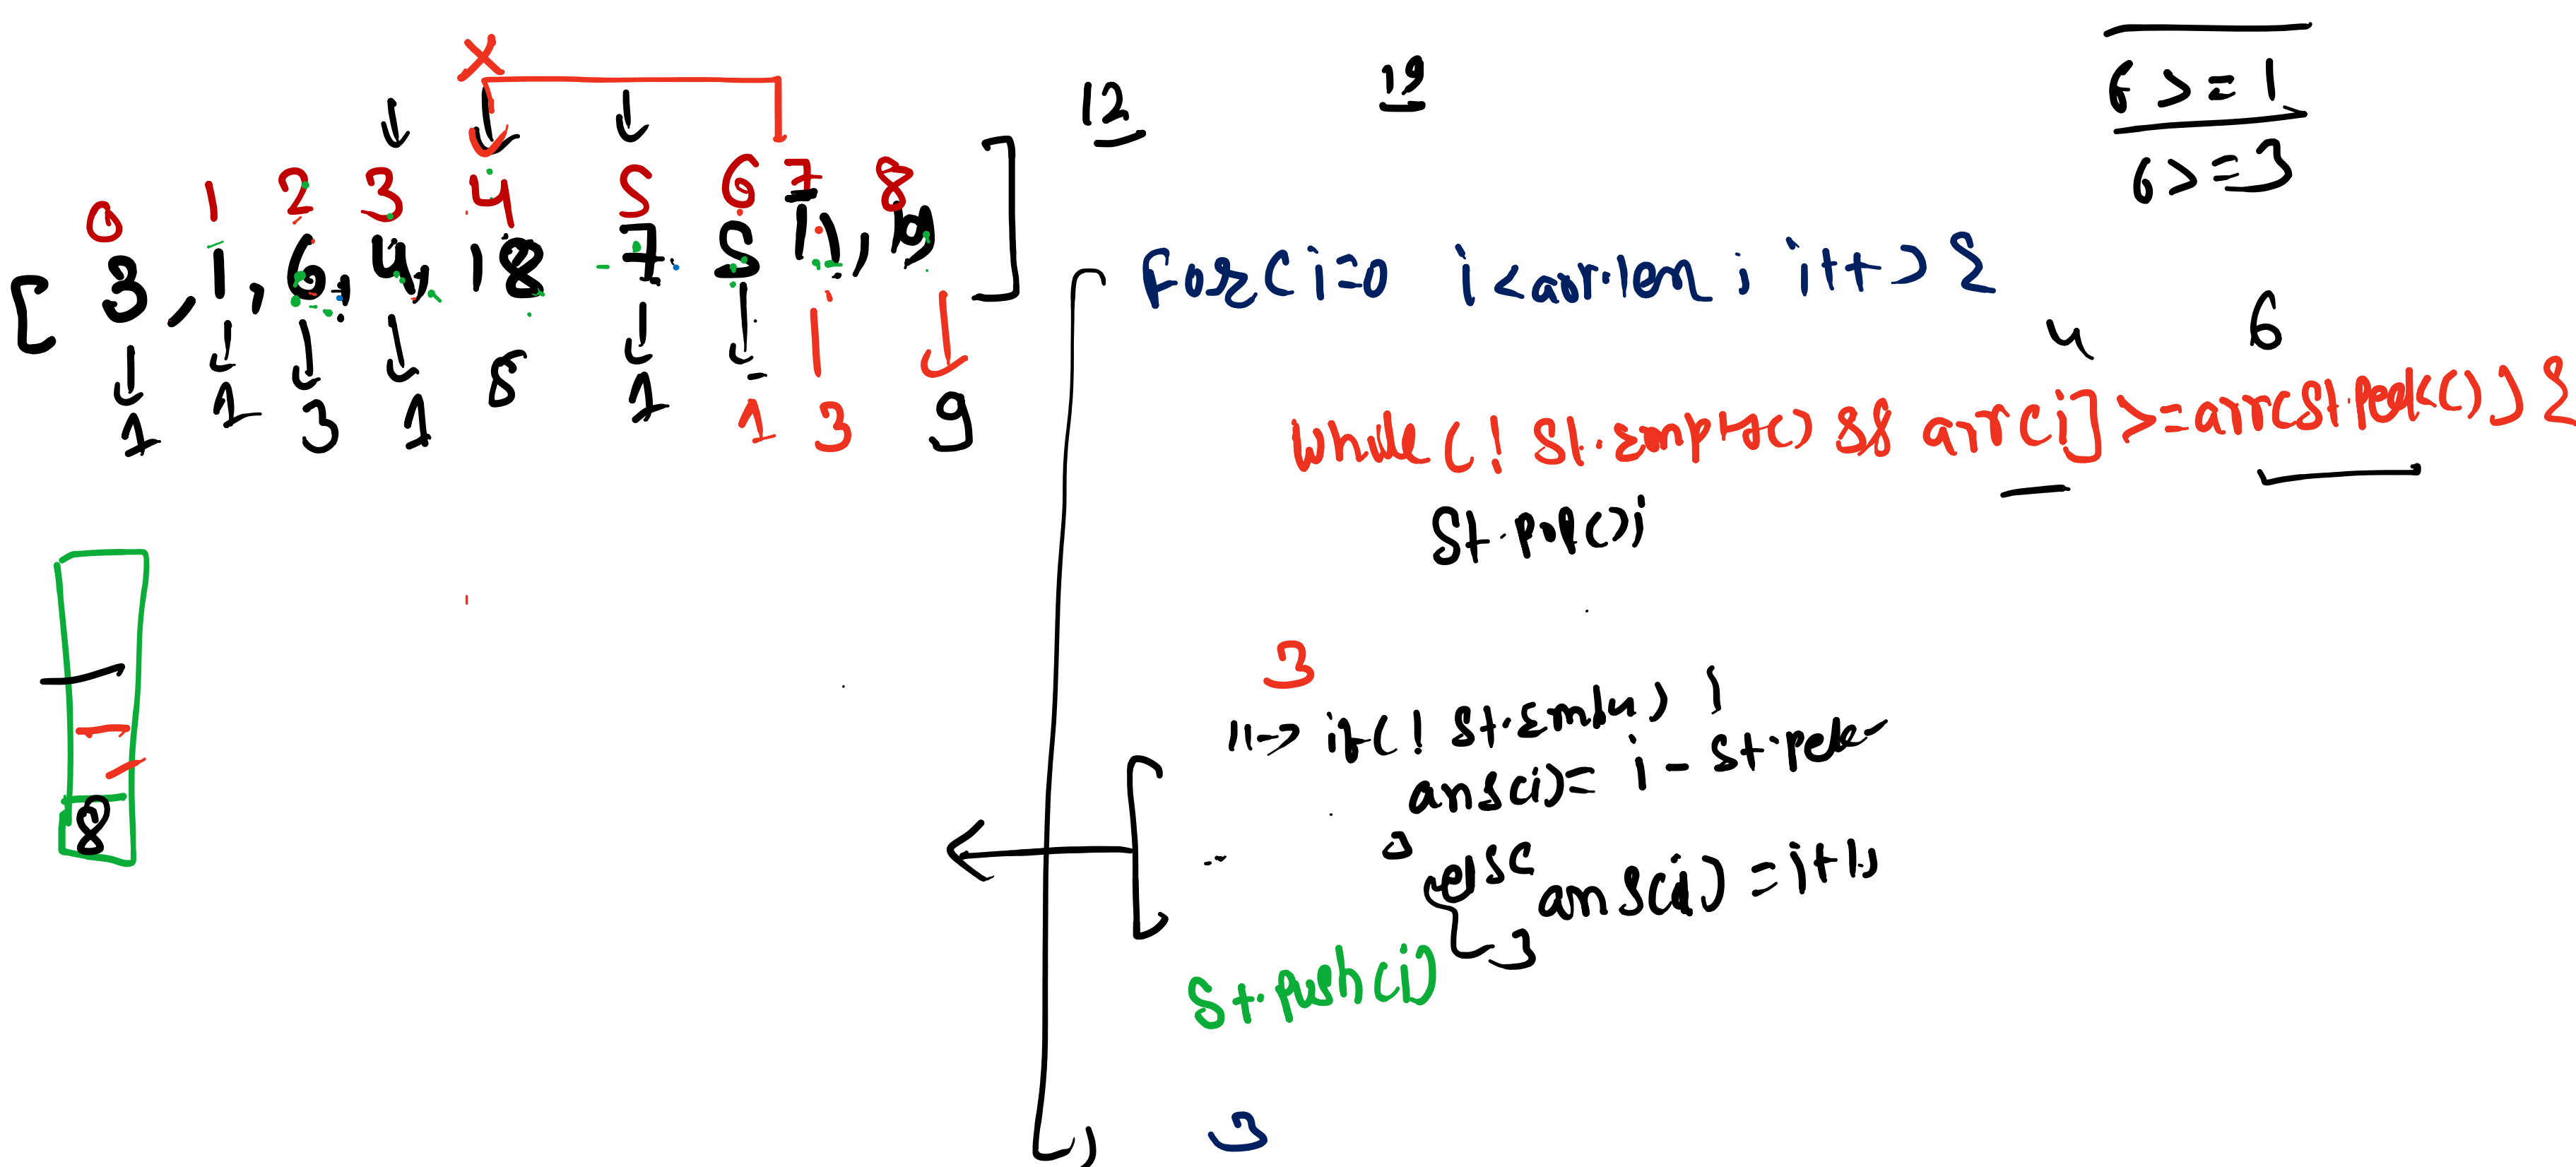 X
12 19
6 >= 1
6 >= 3
0 1 2 3 4 5 6 7 8
[ 3 , 1 , 6 , 4 , 18 7 5 11 , 19 ]
1 1 3 1 5 1 1 3 9
For ( i=0 i < arr.len ; i++ ) {
4 6
while ( ! St.Empty() && arr[i] >= arr(St.Peek()) {
St.pop();
3
8
11-> if( ! St.Empty ) {
ans(i) = i - St.peek
else
ans(i) = i+1;
}
St.push(i)
}